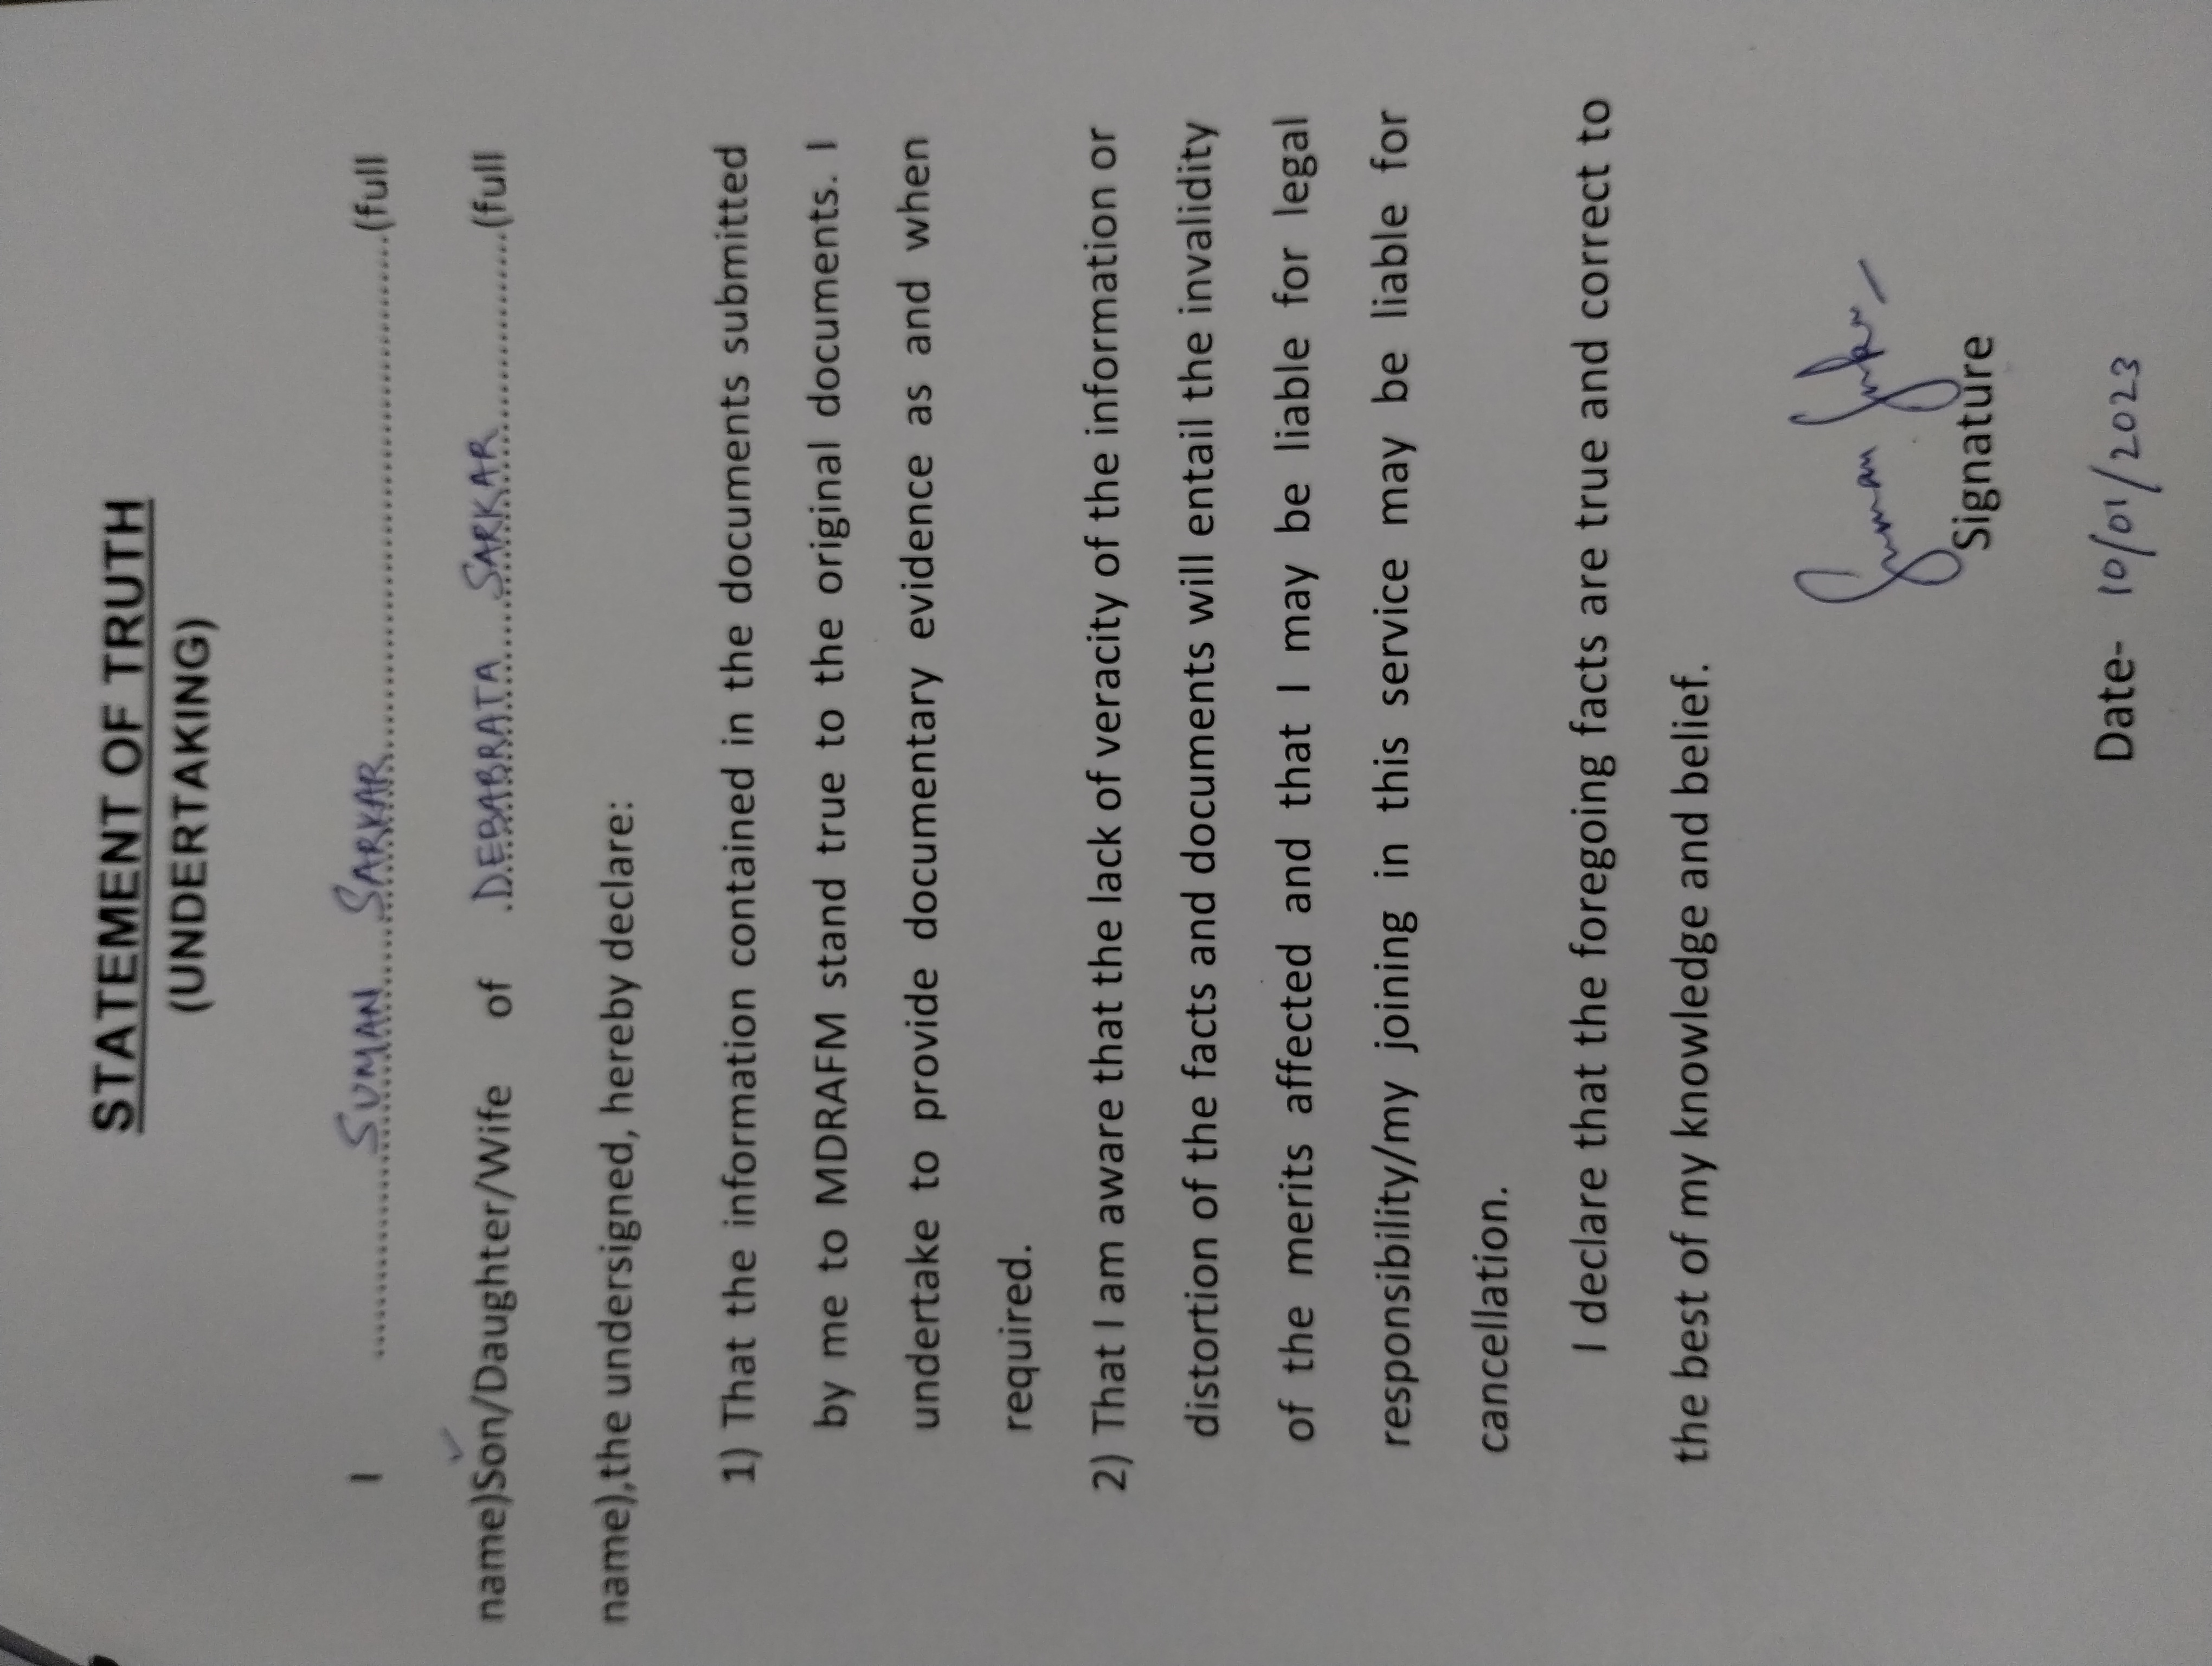 STATEMENT OF TRUTH
(UNDERTAKING)
I ........SUMAN SARKAR........(full
✓
name)Son/Daughter/Wife of .DEBABRATA SARKAR........(full
name),the undersigned, hereby declare:
1) That the information contained in the documents submitted
by me to MDRAFM stand true to the original documents. I
undertake to provide documentary evidence as and when
required.
2) That I am aware that the lack of veracity of the information or
distortion of the facts and documents will entail the invalidity
of the merits affected and that I may be liable for legal
responsibility/my joining in this service may be liable for
cancellation.
I declare that the foregoing facts are true and correct to
the best of my knowledge and belief.
Suman Sarkar
Signature
Date- 10/01/2023